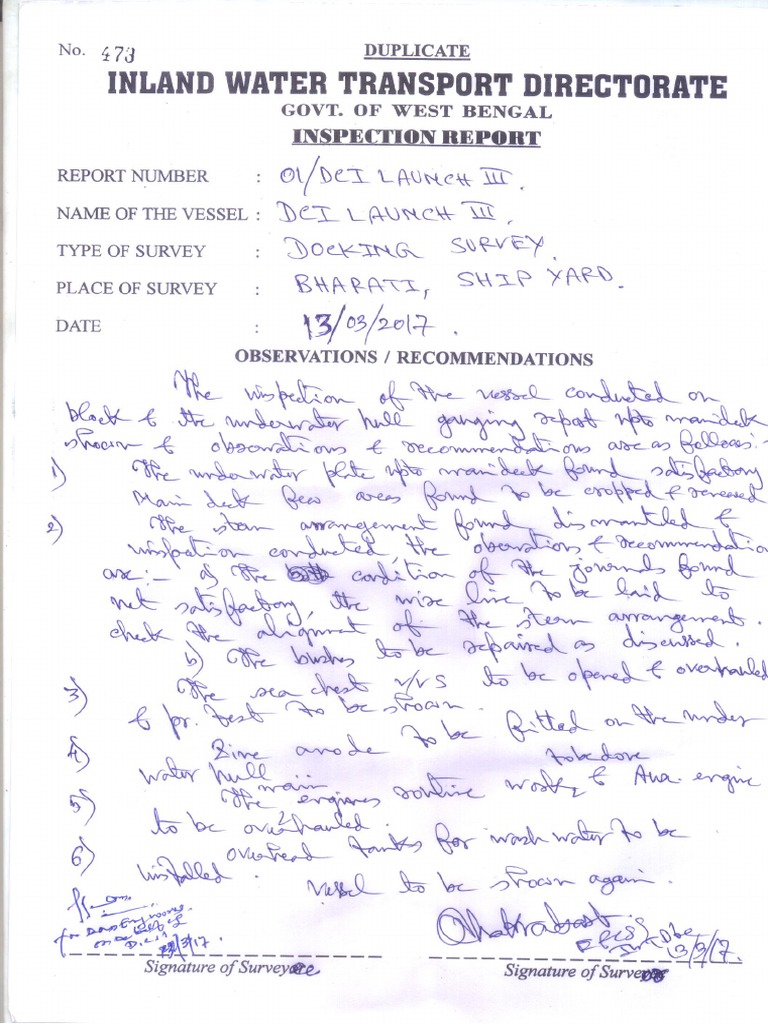 No. 473
DUPLICATE
INLAND WATER TRANSPORT DIRECTORATE
GOVT. OF WEST BENGAL
INSPECTION REPORT
REPORT NUMBER : 01/DCI LAUNCH III.
NAME OF THE VESSEL : DCI LAUNCH III.
TYPE OF SURVEY : DOCKING SURVEY.
PLACE OF SURVEY : BHARATI, SHIP YARD.
DATE : 13/03/2017.
OBSERVATIONS / RECOMMENDATIONS
The inspection of the vessel conducted on
block & the underwater hull gauging report upto maindeck
shown & observations & recommendations are as follows:-
1) The underwater plate upto maindeck found satisfactory
Main deck few areas found to be cropped & renewed
2) The stern arrangement found dismantled &
inspection conducted, the observations & recommendation
are:- a) The condition of the journals found
not satisfactory, the wire line to be laid to
check the alignment of the stern arrangement.
b) The bushes to be repaired as discussed.
3) The sea chest v/vs to be opened & overhauled
& pr. test to be shown.
4) Zinc anode to be fitted on the under
water hull
5) The main engines routine work to be done & Aux. engine
to be overhauled.
6) 2 overhead tanks for wash water to be
installed.
Vessel to be shown again.
on behalf of
D.C.I
13/3/17.
13/3/17.
Signature of Surveyee
Signature of Surveyor